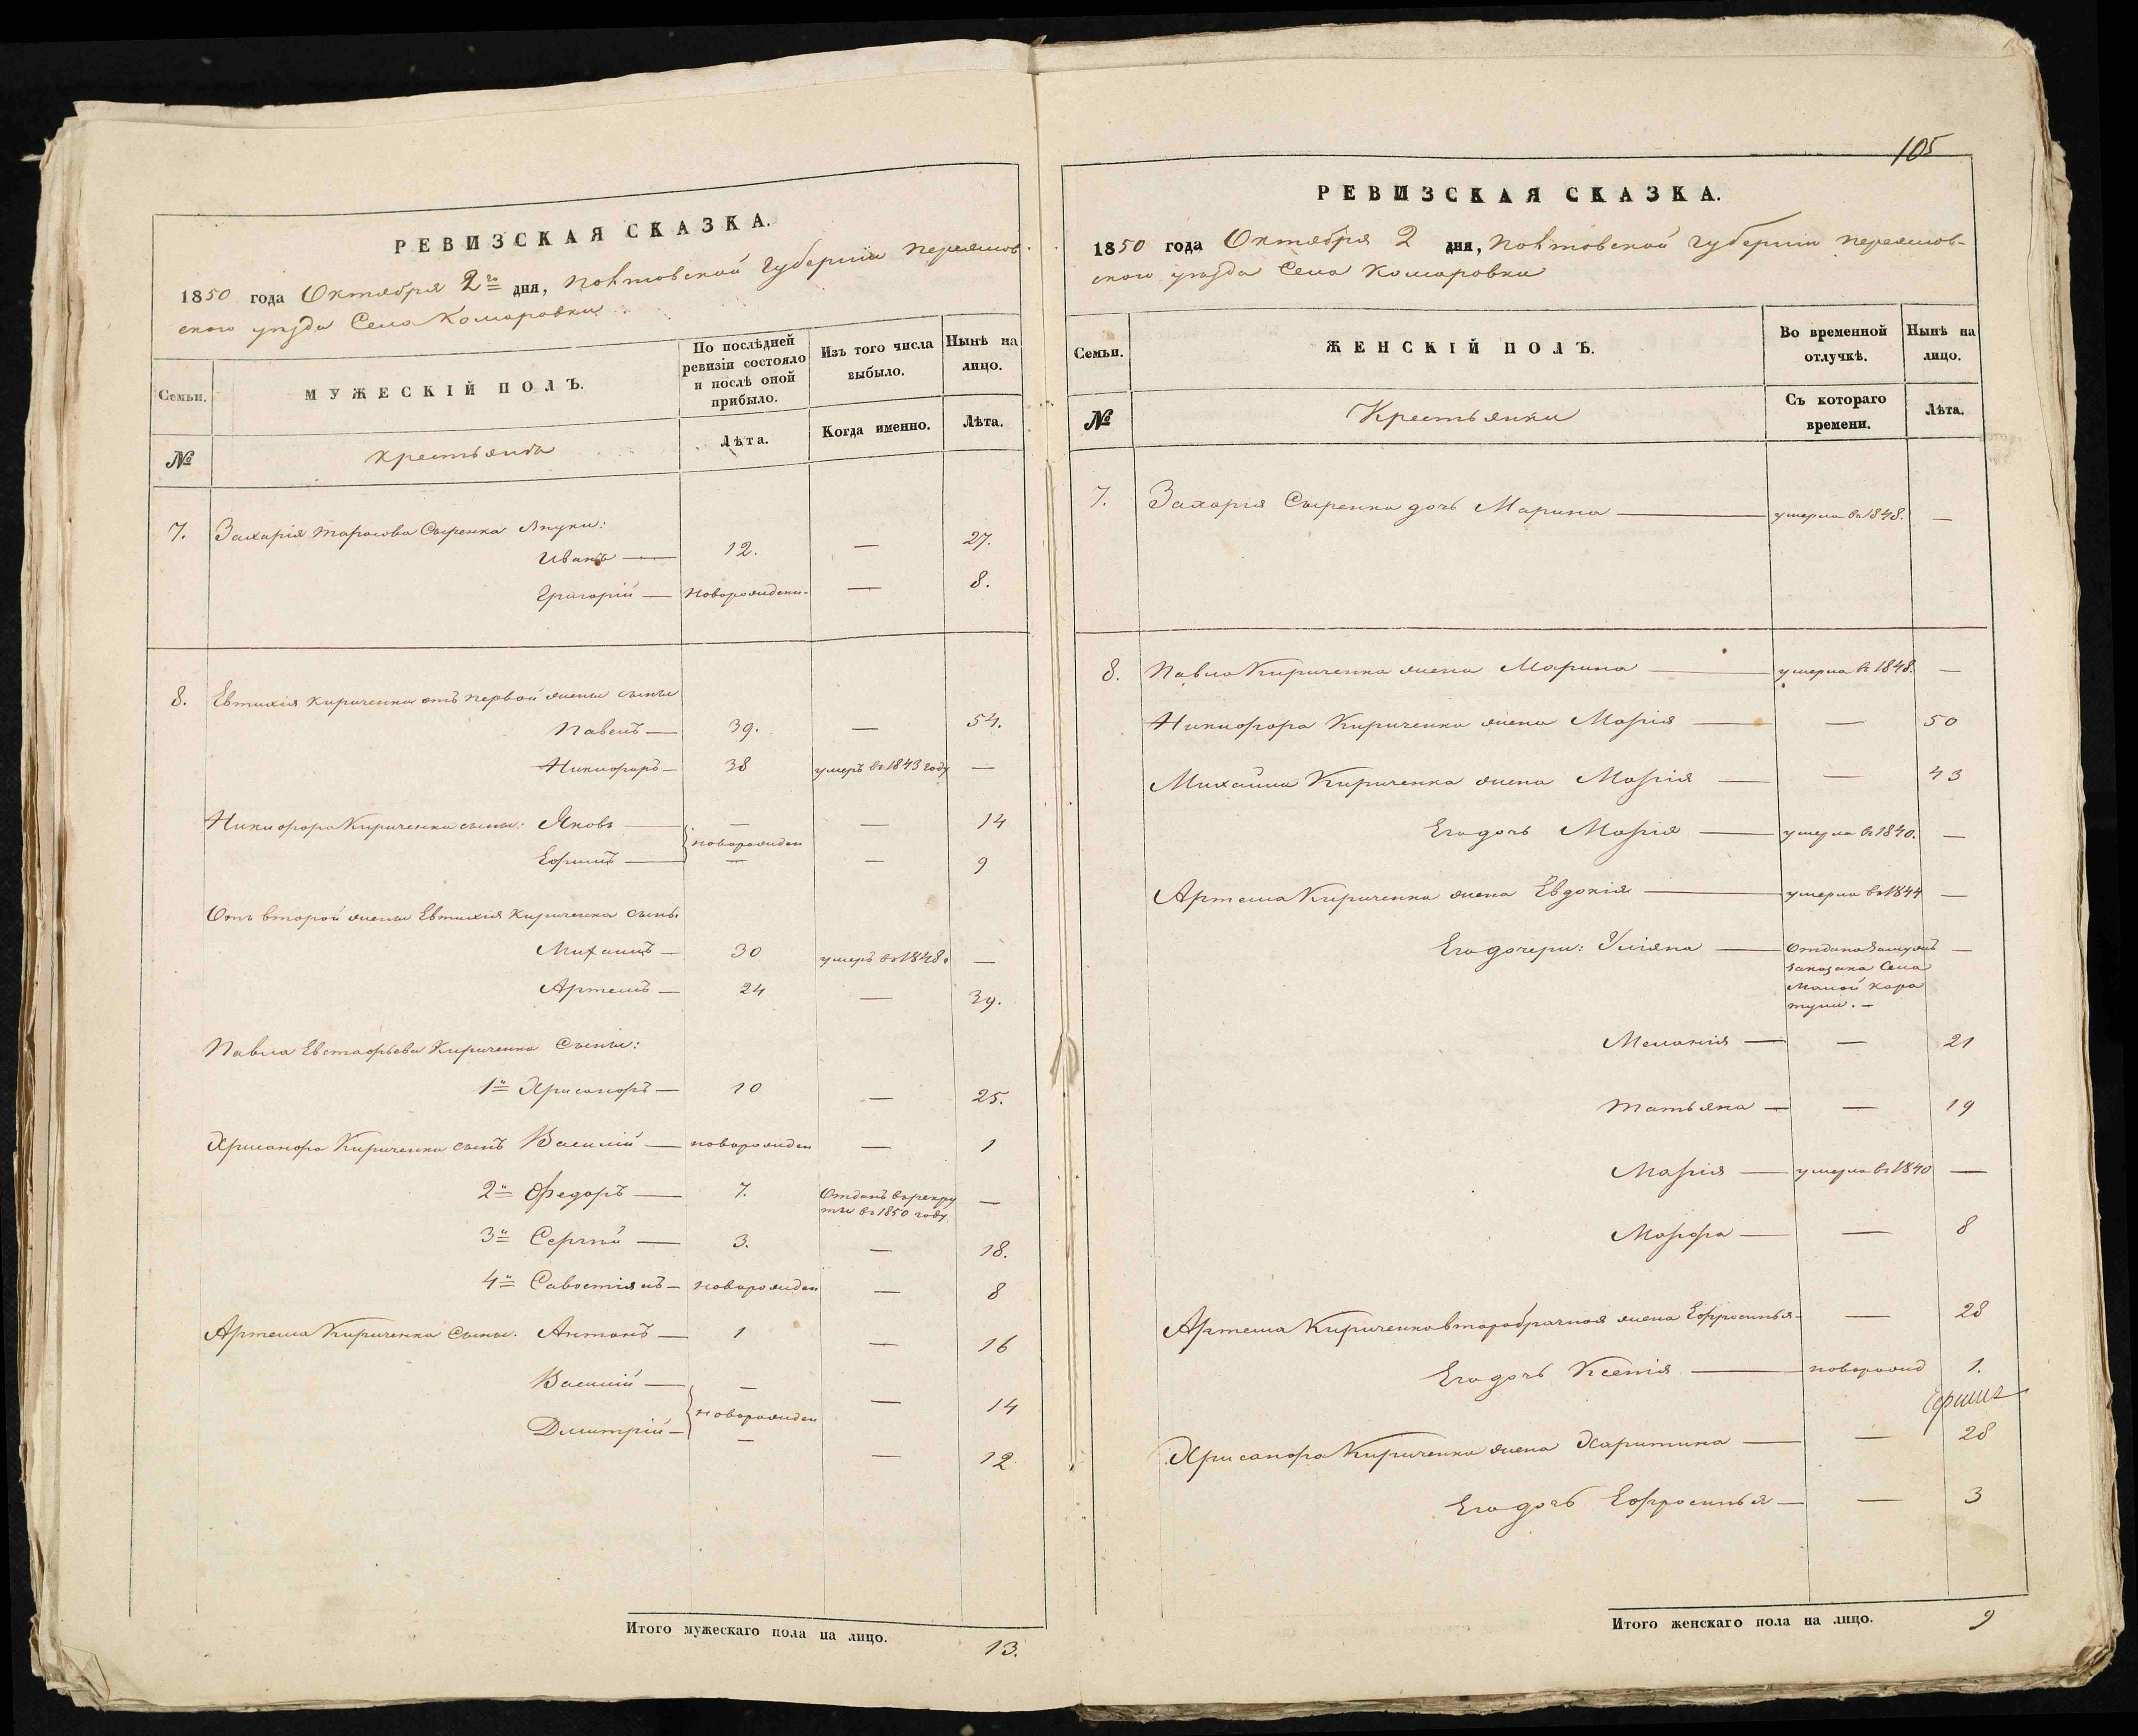 РЕВИЗСКАЯ СКАЗКА.
1850 года Октября 2го дня, Полтовской губернии Переяслов-
ского уезда Села Комаровки
Семьи.
МУЖЕСКІЙ ПОЛЪ.
По послѣдней ревизіи состояло и послѣ оной прибыло.
Изъ того числа выбыло.
Нынѣ на лицо.
№
крестьяне
Лѣта.
Когда именно.
Лѣта.
7. Захарія Тарасова Сыренка внуки:
Иванъ — 12. — 27.
Григорій — Новорожден. — 8.
8. Евтихія Кириченка отъ первой жены сыны
Павелъ — 39. — 54.
Никифоръ — 38 умеръ въ 1843 году —
Никифора Кириченка сыны: Яковъ — — — 14
новорожден
Ефимъ — — — 9
Отъ второй жены Евтихія Кириченка сыны
Михаилъ — 30 умеръ въ 1848. —
Артемъ — 24 — 39.
Павла Евстафьева Кириченка Сыны:
1й Хрисанфъ — 10 — 25.
Хрисанфа Кириченка сынъ Василій — новорожден — 1
2й Федоръ — 7. Отданъ въ рекру
ты въ 1850 году —
3й Сергій — 3. — 18.
4й Савостіянъ — новорожден — 8
Артема Кириченка Сыны: Антонъ — 1 — 16
Василій — — — 14
новорожден
Дмитрій — — — 12
Итого мужескаго пола на лицо. 13.
105
РЕВИЗСКАЯ СКАЗКА.
1850 года Октября 2 дня, Полтовской губернии Переяслов-
ского уезда Села Комаровки
Семьи.
ЖЕНСКІЙ ПОЛЪ.
Во временной отлучкѣ.
Нынѣ на лицо.
№
Крестьянки
Съ котораго времени.
Лѣта.
7. Захарія Сыренка дочь Марина — умерла въ 1848. —
8. Павла Кириченка жена Марина — умерла въ 1848. —
Никифора Кириченка жена Марія — — 50
Михайла Кириченка жена Марія — — 43
Его дочь Марія — умерла въ 1840. —
Артема Кириченка жена Евдокія — умерла въ 1844 —
Его дочери: Уліяна — Отдана замужъ —
за казака Села
Малой Кара
тули. —
Меланія — — 21
Татьяна — — 19
Марія — умерла въ 1840 —
Марфа — — 8
Артема Кириченка второбрачная жена Ефросинья — — 28
Его дочь Ксенія — новорожд 1.
Хрисанфа Кириченка жена Харитина — — 28
Его дочь Ефросинья — — 3
Итого женскаго пола на лицо. 9